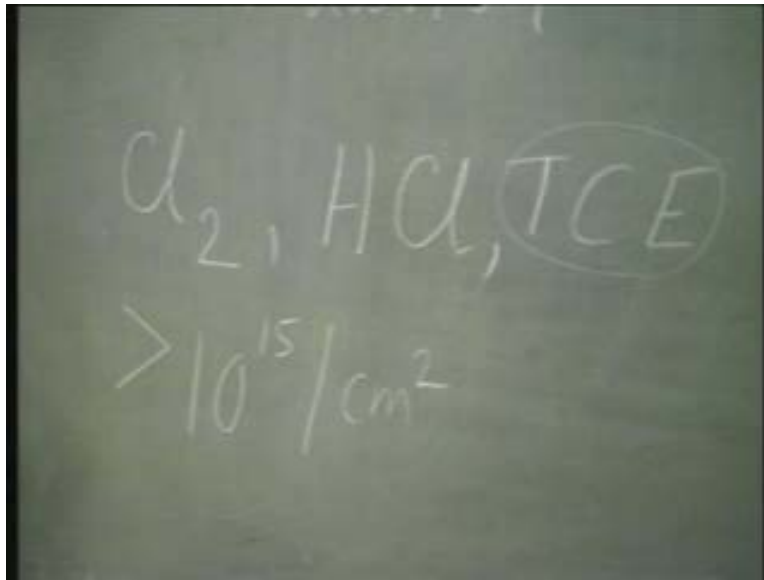 Cl₂, HCl, TCE
>10¹⁵/cm²